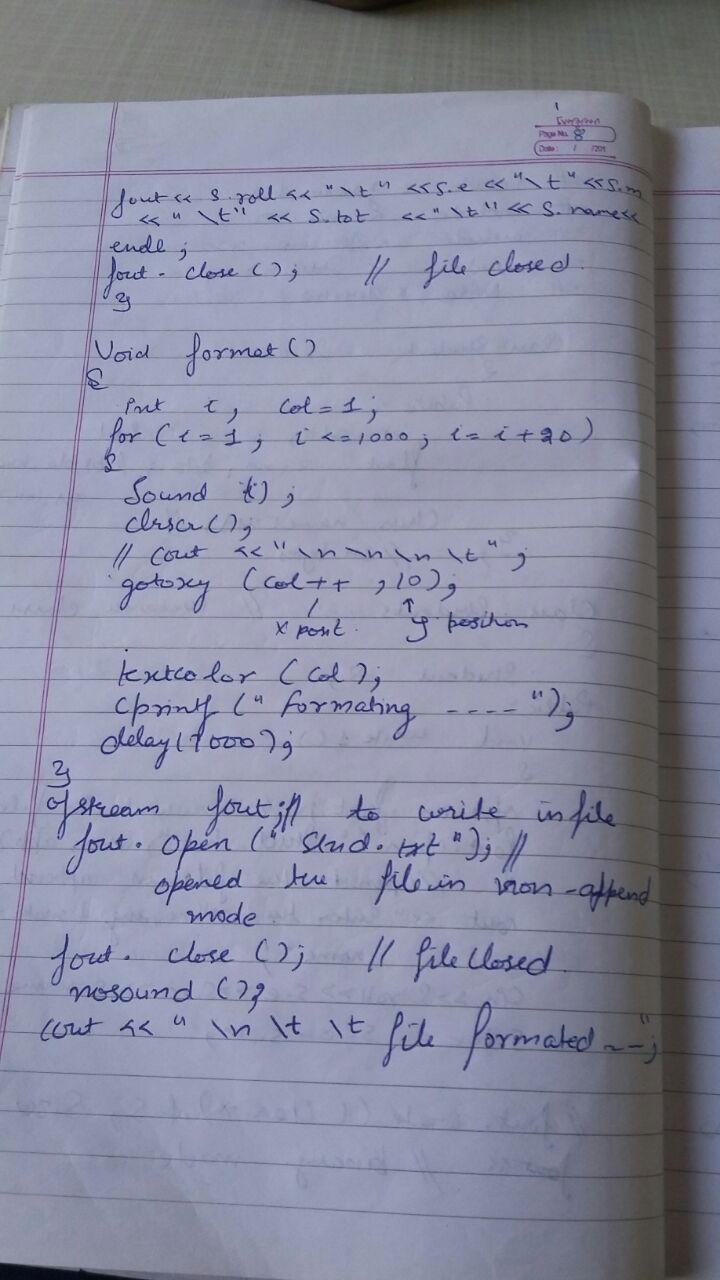 Evergreen
Page No. 8
Date: / /201
fout << S.roll << "\t" << S.e << "\t" << S.m
<< "\t" << S.tot << "\t" << S.name <<
endl ;
fout. close (); // file closed.
}
Void format ()
{
int i, Col = 1;
for (i = 1 ; i <= 1000 ; i = i + 20)
{
Sound (i) ;
clrscr();
// cout << "\n\n\n\t" ;
gotoxy (col++ , 10);
x posit. y position
textcolor (col);
Cprintf (" formating ---- ");
delay (1000);
}
Ofstream fout; // to write in file
fout. open (" Stud. txt "); //
opened the file in non-append
mode
fout. close (); // file closed.
nosound ();
cout << " \n \t \t file formated --";